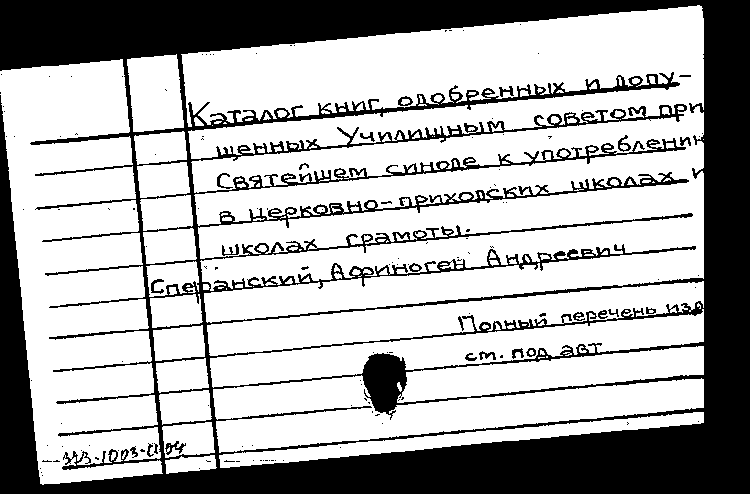 Каталог книг, одобренных и допу-
щенных Училищным советом при
Святейшем синоде к употреблению
в церковно-приходских школах и
школах грамоты.
Сперанский, Афиноген Андреевич
Полный перечень изд
ст. под авт